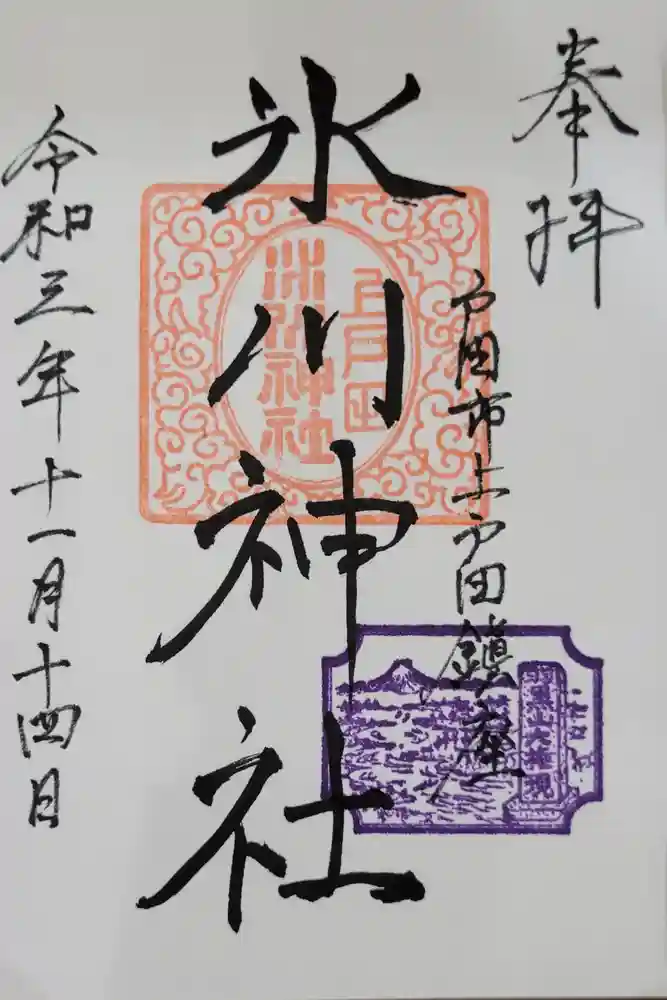 奉拝
戸田市上戸田鎮座
氷川神社
令和三年十一月十四日
上戸田
氷川神社
羽黒山大権現